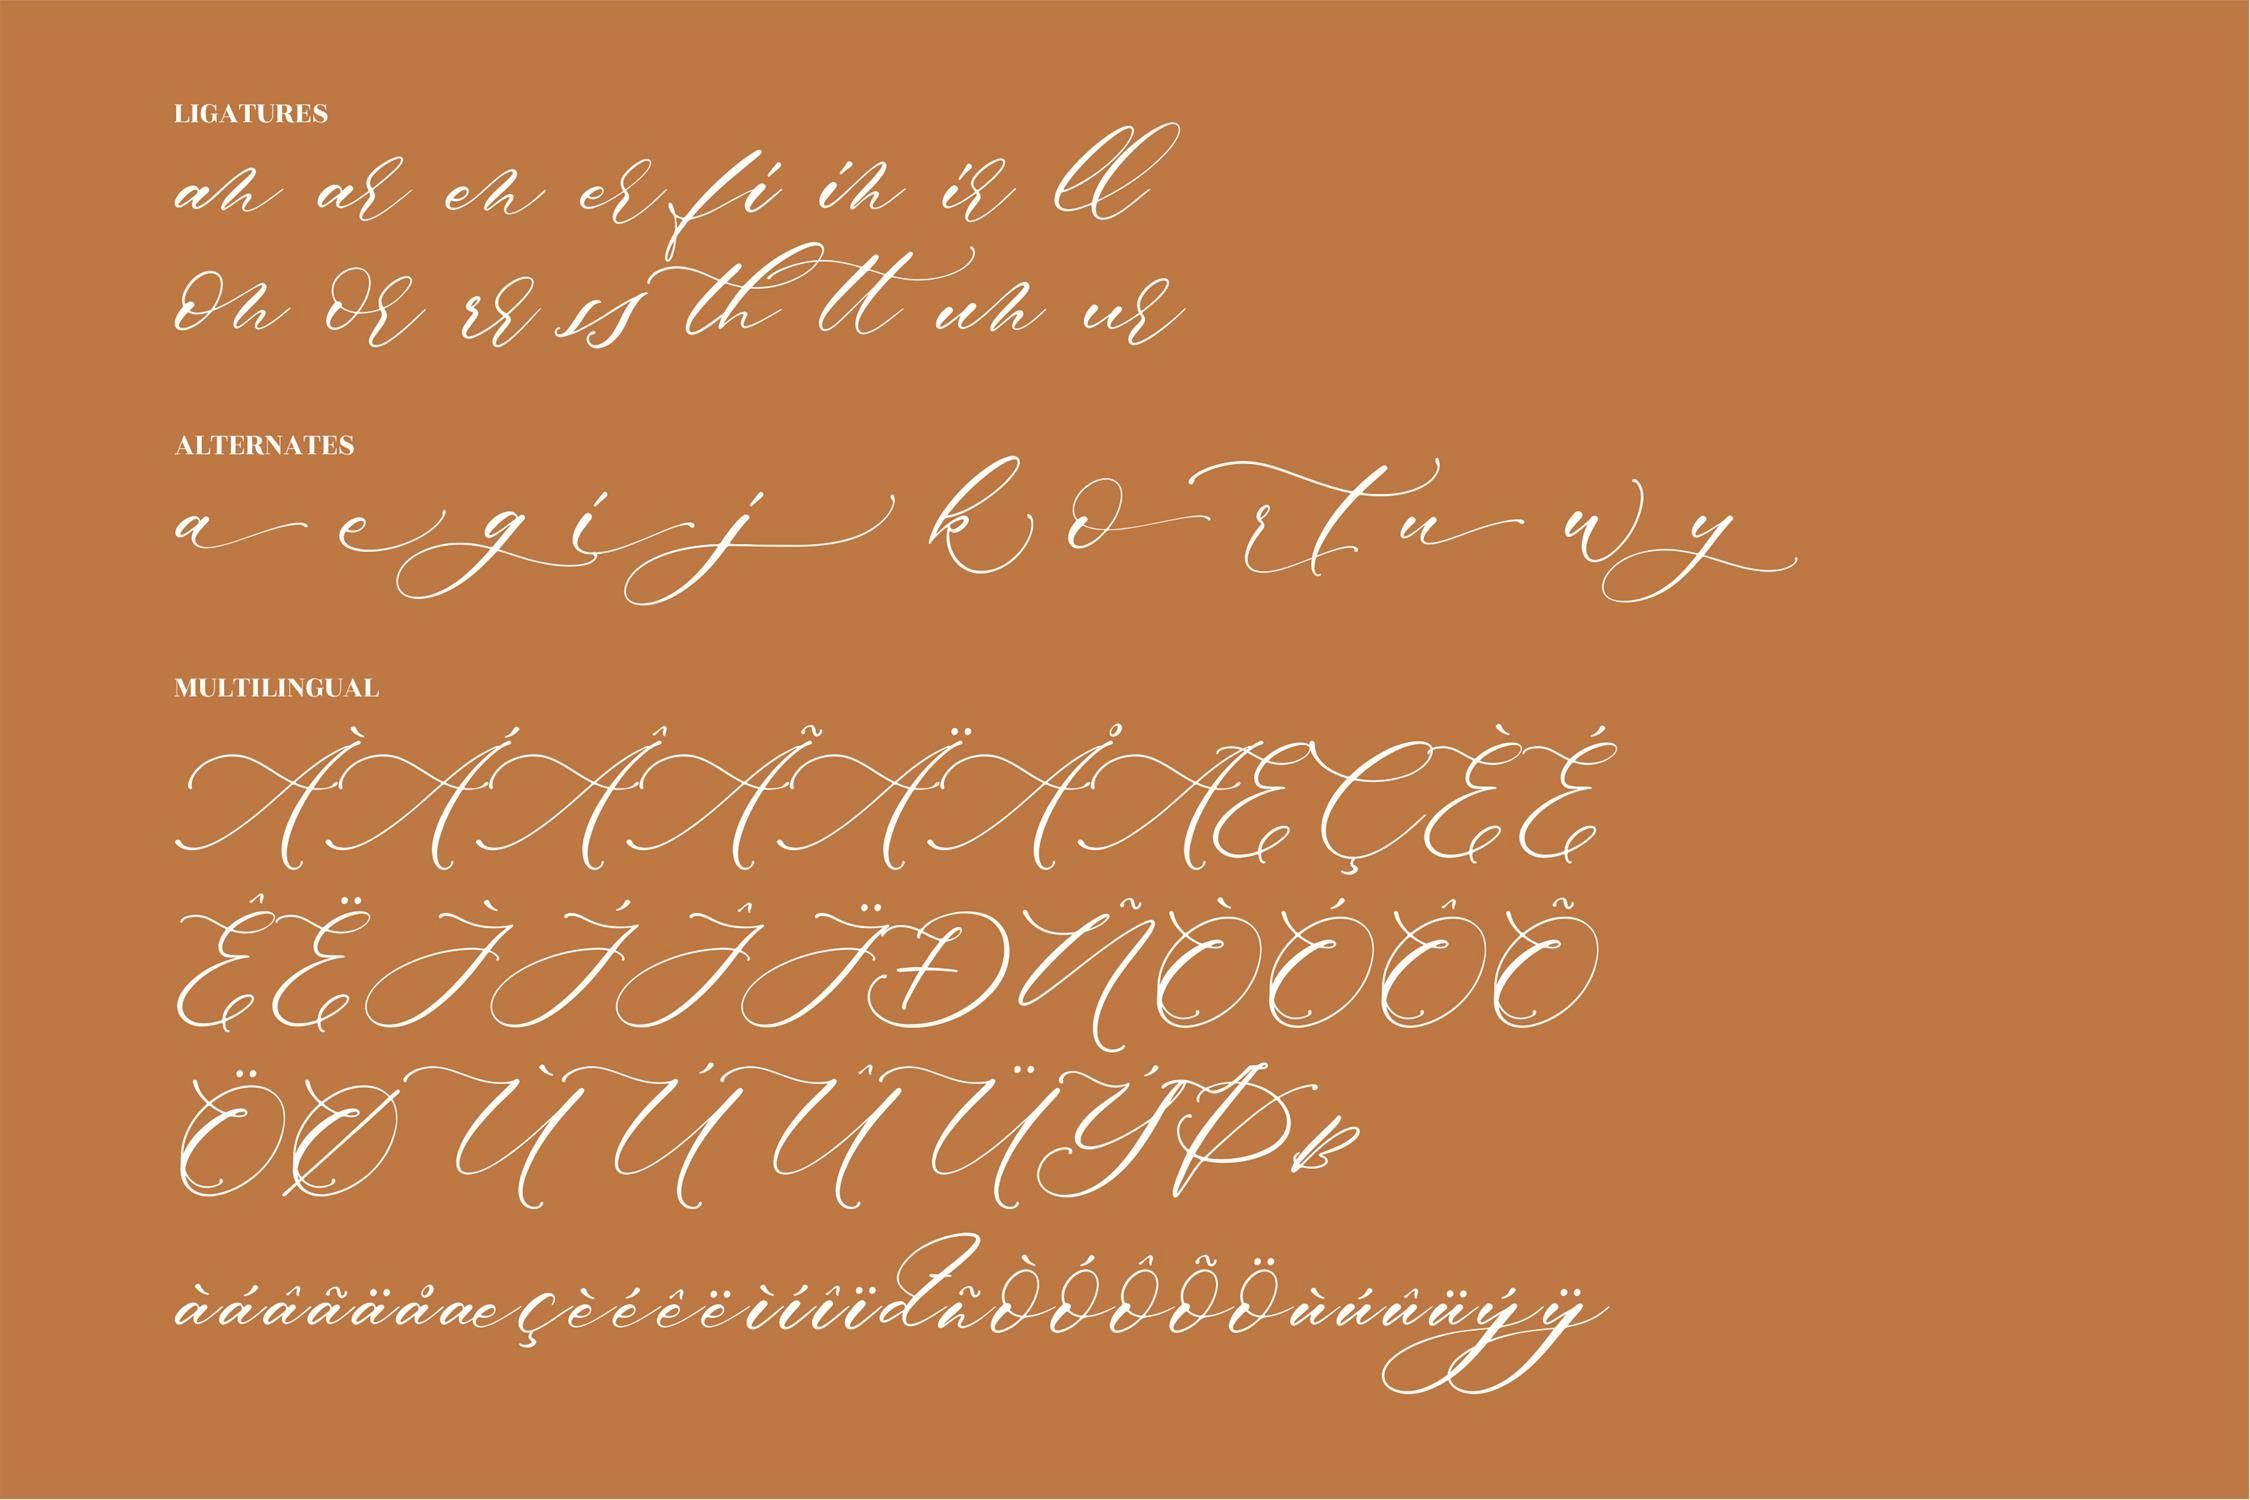 LIGATURES
ah ar eh er fi ih ir ll
oh or rr ss th tt uh ur
ALTERNATES
a e g i j k o r t u w y
MULTILINGUAL
ÀÁÂÃÄÅÆÇÈÉ
ÊËÌÍÎÏÐÑÒÓÔÕ
ÖØÙÚÛÜÝÞ
àáâãäåæçèéêëìíîïðñòóôõöùúûüýÿ